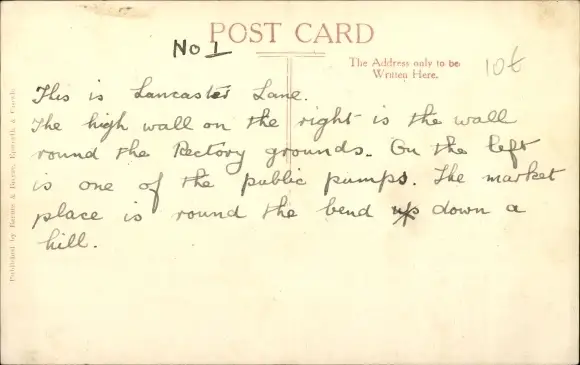 POST CARD
No 1
The Address only to be
Written Here.
106
This is Lancaster Lane.
The high wall on the right is the wall
round the Rectory grounds. On the left
is one of the public pumps. The market
place is round the bend up down a
hill.
Published by Barnes & Breeze, Epworth, & Crowle